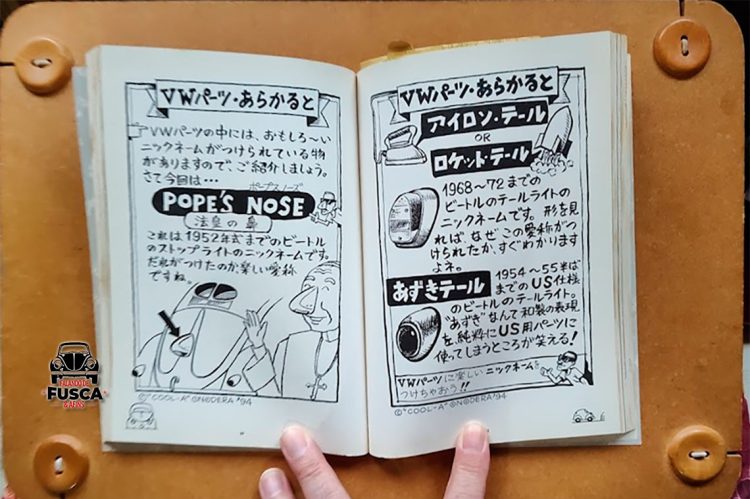 VWパーツ・あらかると
VWパーツの中には、おもしろ〜い
ニックネームがつけられている物
がありますので、ご紹介しましょう。
さて今回は…
ポープスノーズ
POPE'S NOSE
法皇の鼻
これは1952年式までのビートル
のストップライトのニックネームです。
だれがつけたのか、楽しい愛称
ですね。
©"COOL-A" ONODERA '94
VWパーツ・あらかると
アイロン・テール
OR
ロケット・テール
1968〜72までの
ビートルのテールライトの
ニックネームです。形を見
れば、なぜこの愛称がつ
けられたか、すぐわかります
よネ。
あずきテール
1954〜55半ば
までのUS仕様
のビートルのテールライト。
"あずき"なんて和製の表現
を、純粋にUS用パーツに
使ってしまうところが笑える!
VWパーツに楽しいニックネームを
つけちゃおう!!
©"COOL-A" ONODERA '94
FUSCA